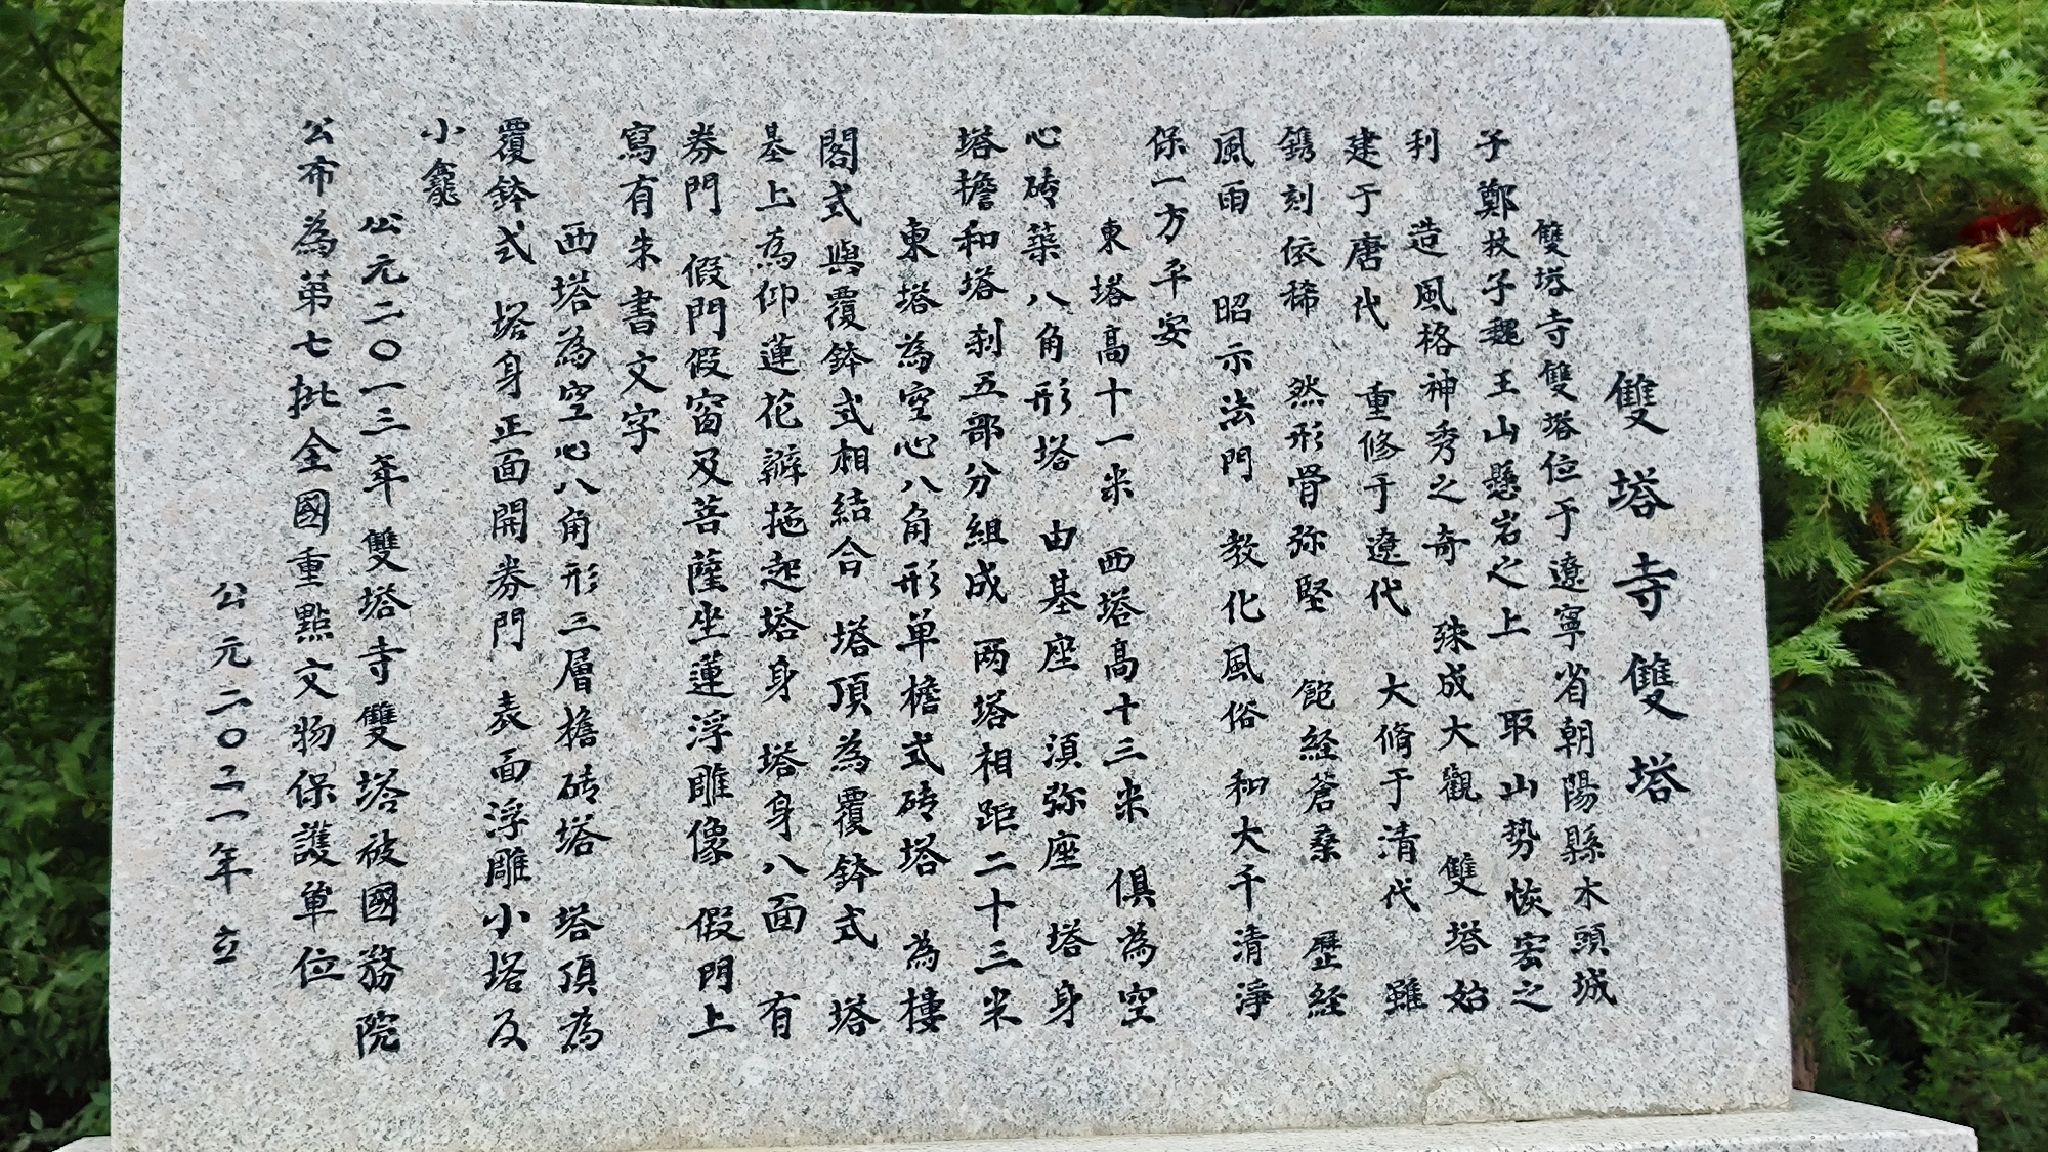 雙塔寺雙塔
雙塔寺雙塔位于遼寧省朝陽縣木頭城
子鄭杖子魏王山懸岩之上 取山势恢宏之
利 造風格神秀之奇 殊成大觀 雙塔始
建于唐代 重修于遼代 大脩于清代 雖
鐫刻依稀 然形骨弥堅 飽経蒼桑 歷経
風雨 昭示法門 教化風俗 和大千清淨
保一方平安
東塔高十一米 西塔高十三米 俱為空
心砖築八角形塔 由基座 湏弥座 塔身
塔檐和塔刹五部分組成 两塔相距二十三米
東塔為空心八角形单檐式砖塔 為樓
閣式與覆鉢式相結合 塔頂為覆鉢式 塔
基上為仰蓮花瓣拖起塔身 塔身八面 有
券門 假門假窗及菩薩坐蓮浮雕像 假門上
寫有朱書文字
西塔為空心八角形三層檐砖塔 塔頂為
覆鉢式 塔身正面開券門 表面浮雕小塔及
小龕
公元二〇一三年 雙塔寺雙塔被國務院
公布為第七批全國重點文物保護单位
公元二〇二一年 立